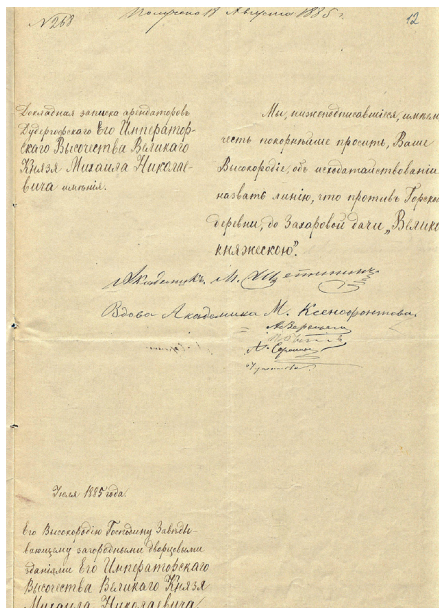 №268
Получено 18 Августа 1885 г.
12
Докладная записка арендаторовъ
Дудергофскаго Его Император-
скаго Высочества Великаго
Князя Михаила Николае-
вича имѣнія.
Мы, нижеподписавшіеся, имѣемъ
честь покорнѣйше просить, Ваше
Высокородіе, объ исходатайствованіи
назвать линію, что противъ Горской
деревни, до Захаровой дачи „Велико
княжескою".
Академикъ М. Щетининъ
Вдова Академика М. Ксенофонтова.
Іюля 1885 года.
Его Высокородію Господину Завѣды-
вающему загородными дворцовыми
зданіями Его Императорскаго
Высочества Великаго Князя
Михаила Николаевича